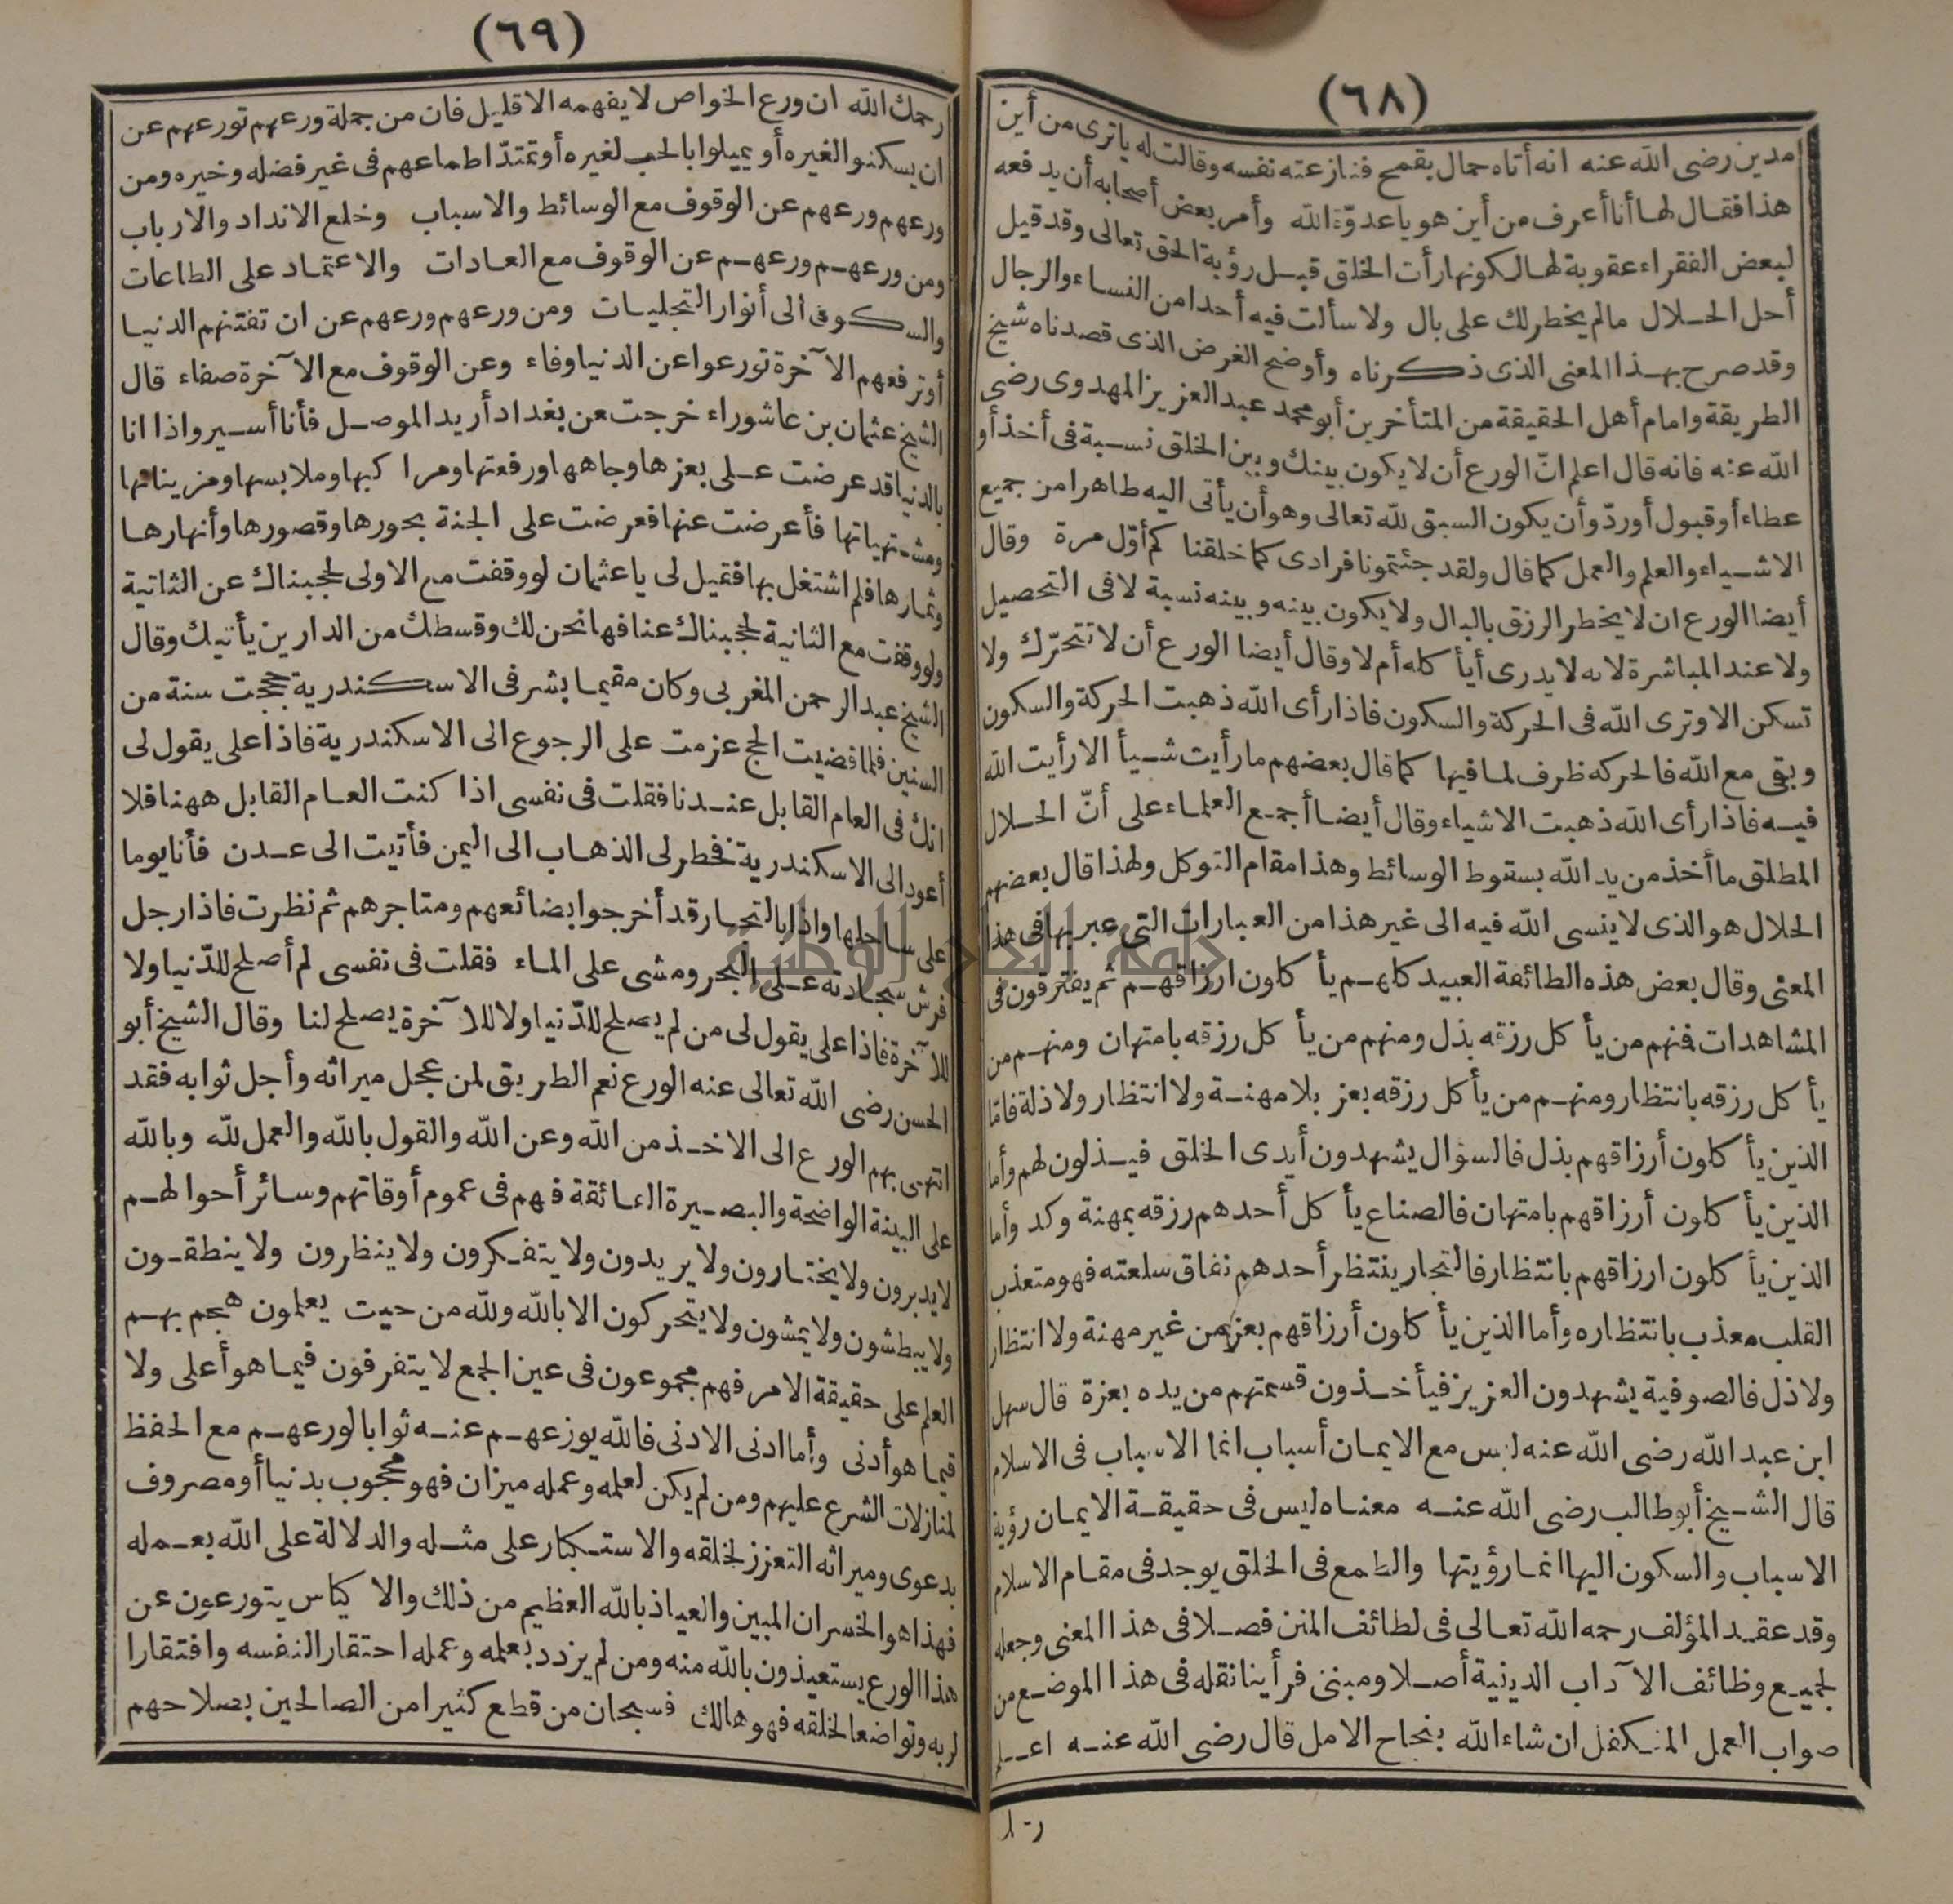 (٦٨)
مدين رضى الله عنه انه أتاه حمال بقمح فنازعته نفسه وقالت له ياترى من أين
هذا فقال لها أنا أعرف من أين هو ياعدوّة الله وأمر بعض أصحابه أن يدفعه
لبعض الفقراء عقوبة لها لكونها رأت الخلق قبل رؤية الحق تعالى وقد قيل
أحل الحلال مالم يخطر لك على بال ولا سألت فيه أحدا من النساء والرجال
وقد صرح بهذا المعنى الذى ذكرناه وأوضح الغرض الذى قصدناه شيخ
الطريقة وامام أهل الحقيقة من المتأخرين أبو محمد عبد العزيز المهدوى رضى
الله عنه فانه قال اعلم انّ الورع أن لا يكون بينك وبين الخلق نسبة فى أخذ أو
عطاء أو قبول أوردّ وأن يكون السبق لله تعالى وهو أن يأتى اليه طاهرا من جميع
الاشياء والعلم والعمل كما قال ولقد جئتمونا فرادى كما خلقناكم أوّل مرة وقال
أيضا الورع ان لا يخطر الرزق بالبال ولا يكون بينه وبينه نسبة لا فى التحصيل
ولا عند المباشرة لانه لا يدرى أيأكله أم لا وقال أيضا الورع أن لا تتحرّك ولا
تسكن الا وترى الله فى الحركة والسكون فاذا رأى الله ذهبت الحركة والسكون
وبقى مع الله فالحركه ظرف لما فيها كما قال بعضهم ما رأيت شيأ الا رأيت الله
فيه فاذا رأى الله ذهبت الاشياء وقال أيضا أجمع العلماء على أنّ الحلال
المطلق ما أخذ من يد الله بسقوط الوسائط وهذا مقام التوكل ولهذا قال بعضهم
الحلال هو الذى لا ينسى الله فيه الى غير هذا من العبارات التى عبر بها فى هذا
المعنى وقال بعض هذه الطائفة العبيد كلهم يأكلون ارزاقهم ثم يفترقون فى
المشاهدات فمنهم من يأكل رزقه بذل ومنهم من يأكل رزقه بامتهان ومنهم من
يأكل رزقه بانتظار ومنهم من يأكل رزقه بعز بلا مهنة ولا انتظار ولا ذلة فامّا
الذين يأكلون أرزاقهم بذل فالسؤال يشهدون أيدى الخلق فيذلون لهم وأما
الذين يأكلون أرزاقهم بامتهان فالصناع يأكل أحدهم رزقه بمهنة وكد وأما
الذين يأكلون ارزاقهم بانتظار فالتجار ينتظر أحدهم نفاق سلعته فهو متعذب
القلب معذب بانتظاره وأما الذين يأكلون أرزاقهم بعز من غير مهنة ولا انتظار
ولا ذل فالصوفية يشهدون العزيز فيأخذون قسمتهم من يده بعزة قال سهل
ابن عبد الله رضى الله عنه ليس مع الايمان أسباب انما الاسباب فى الاسلام
قال الشيخ أبو طالب رضى الله عنه معناه ليس فى حقيقة الايمان رؤية
الاسباب والسكون اليها انما رؤيتها والطمع فى الخلق يوجد فى مقام الاسلام
وقد عقد المؤلف رحمه الله تعالى فى لطائف المنن فصلا فى هذا المعنى وجعله
لجميع وظائف الآداب الدينية أصلا ومبنى فرأينا نقله فى هذا الموضع من
صواب العمل المتكفل ان شاء الله بنجاح الامل قال رضى الله عنه اعلم
(٦٩)
رحمك الله ان ورع الخواص لا يفهمه الا قليل فان من جملة ورعهم تورعهم عن
ان يسكنوا لغيره أو يميلوا بالحب لغيره أو تمتدّ اطماعهم فى غير فضله وخيره ومن
ورعهم ورعهم عن الوقوف مع الوسائط والاسباب وخلع الانداد والارباب
ومن ورعهم ورعهم عن الوقوف مع العادات والاعتماد على الطاعات
والسكون الى أنوار التجليات ومن ورعهم ورعهم عن ان تفتنهم الدنيا
أو ترفعهم الآخرة تورعوا عن الدنيا وفاء وعن الوقوف مع الآخرة صفاء قال
الشيخ عثمان بن عاشوراء خرجت من بغداد أريد الموصل فأنا أسير واذا انا
بالدنيا قد عرضت على بعزها وجاهها ورفعتها ومراكبها وملابسها ومزيناتها
ومشتهياتها فأعرضت عنها فعرضت على الجنة بحورها وقصورها وأنهارها
وثمارها فلم اشتغل بها فقيل لى ياعثمان لو وقفت مع الاولى لحجبناك عن الثانية
ولو وقفت مع الثانية لحجبناك عنا فها نحن لك وقسطك من الدارين يأتيك وقال
الشيخ عبد الرحمن المغربى وكان مقيما بشرفى الاسكندرية حججت سنة من
السنين فلما قضيت الحج عزمت على الرجوع الى الاسكندرية فاذا على يقول لى
انك فى العام القابل عندنا فقلت فى نفسى اذا كنت العام القابل ههنا فلا
أعود الى الاسكندرية فخطر لى الذهاب الى اليمن فأتيت الى عدن فأنا يوما
على ساحلها واذا بالتجار قد أخرجوا بضائعهم ومتاجرهم ثم نظرت فاذا رجل
فرش سجادته على البحر ومشى على الماء فقلت فى نفسى لم أصلح للدّنيا ولا
للآخرة فاذا على يقول لى من لم يصلح للدّنيا ولا للآخرة يصلح لنا وقال الشيخ أبو
الحسن رضى الله تعالى عنه الورع نعم الطريق لمن عجل ميراثه وأجل ثوابه فقد
انتهى بهم الورع الى الاخذ من الله وعن الله والقول بالله والعمل لله وبالله
على البينة الواضحة والبصيرة الفائقة فهم فى عموم أوقاتهم وسائر أحوالهم
لا يدبرون ولا يختارون ولا يريدون ولا يتفكرون ولا ينظرون ولا ينطقون
ولا يبطشون ولا يمشون ولا يتحركون الا بالله ولله من حيث يعلمون هجم بهم
العلم على حقيقة الامر فهم مجموعون فى عين الجمع لا يتفرقون فيما هو أعلى ولا
فيما هو أدنى وأما ادنى الادنى فالله يوزعهم عنه ثوابا لورعهم مع الحفظ
لمنازلات الشرع عليهم ومن لم يكن لعلمه وعمله ميزان فهو محجوب بدنيا أو مصروف
بدعوى وميراثه التعزز لخلقه والاستكبار على مثله والدلالة على الله بعمله
فهذا هو الخسران المبين والعياذ بالله العظيم من ذلك والاكياس يتورعون عن
هذا الورع يستعيذون بالله منه ومن لم يزدد بعلمه وعمله احتقارا لنفسه وافتقارا
لربه وتواضعا لخلقه فهو هالك فسبحان من قطع كثيرا من الصالحين بصلاحهم